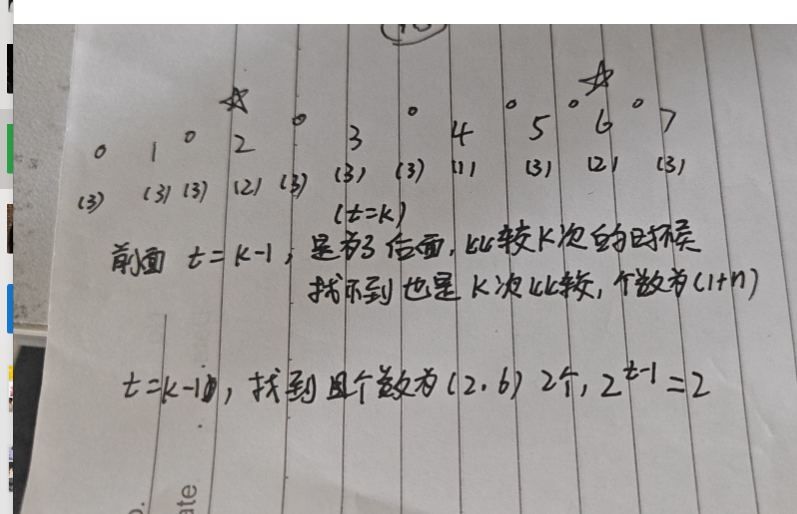 ☆ ☆
0 1 0 2 0 3 0 4 0 5 0 6 0 7
(3) (3) (3) (2) (3) (3) (3) (1) (3) (2) (3)
(t=k)
前面 t=k-1, 是为了后面,比较k次的时候
找不到也是k次比较,个数为(1+n)
t=k-1时, 找到且个数为(2,6) 2个, 2^{t-1}=2
ate